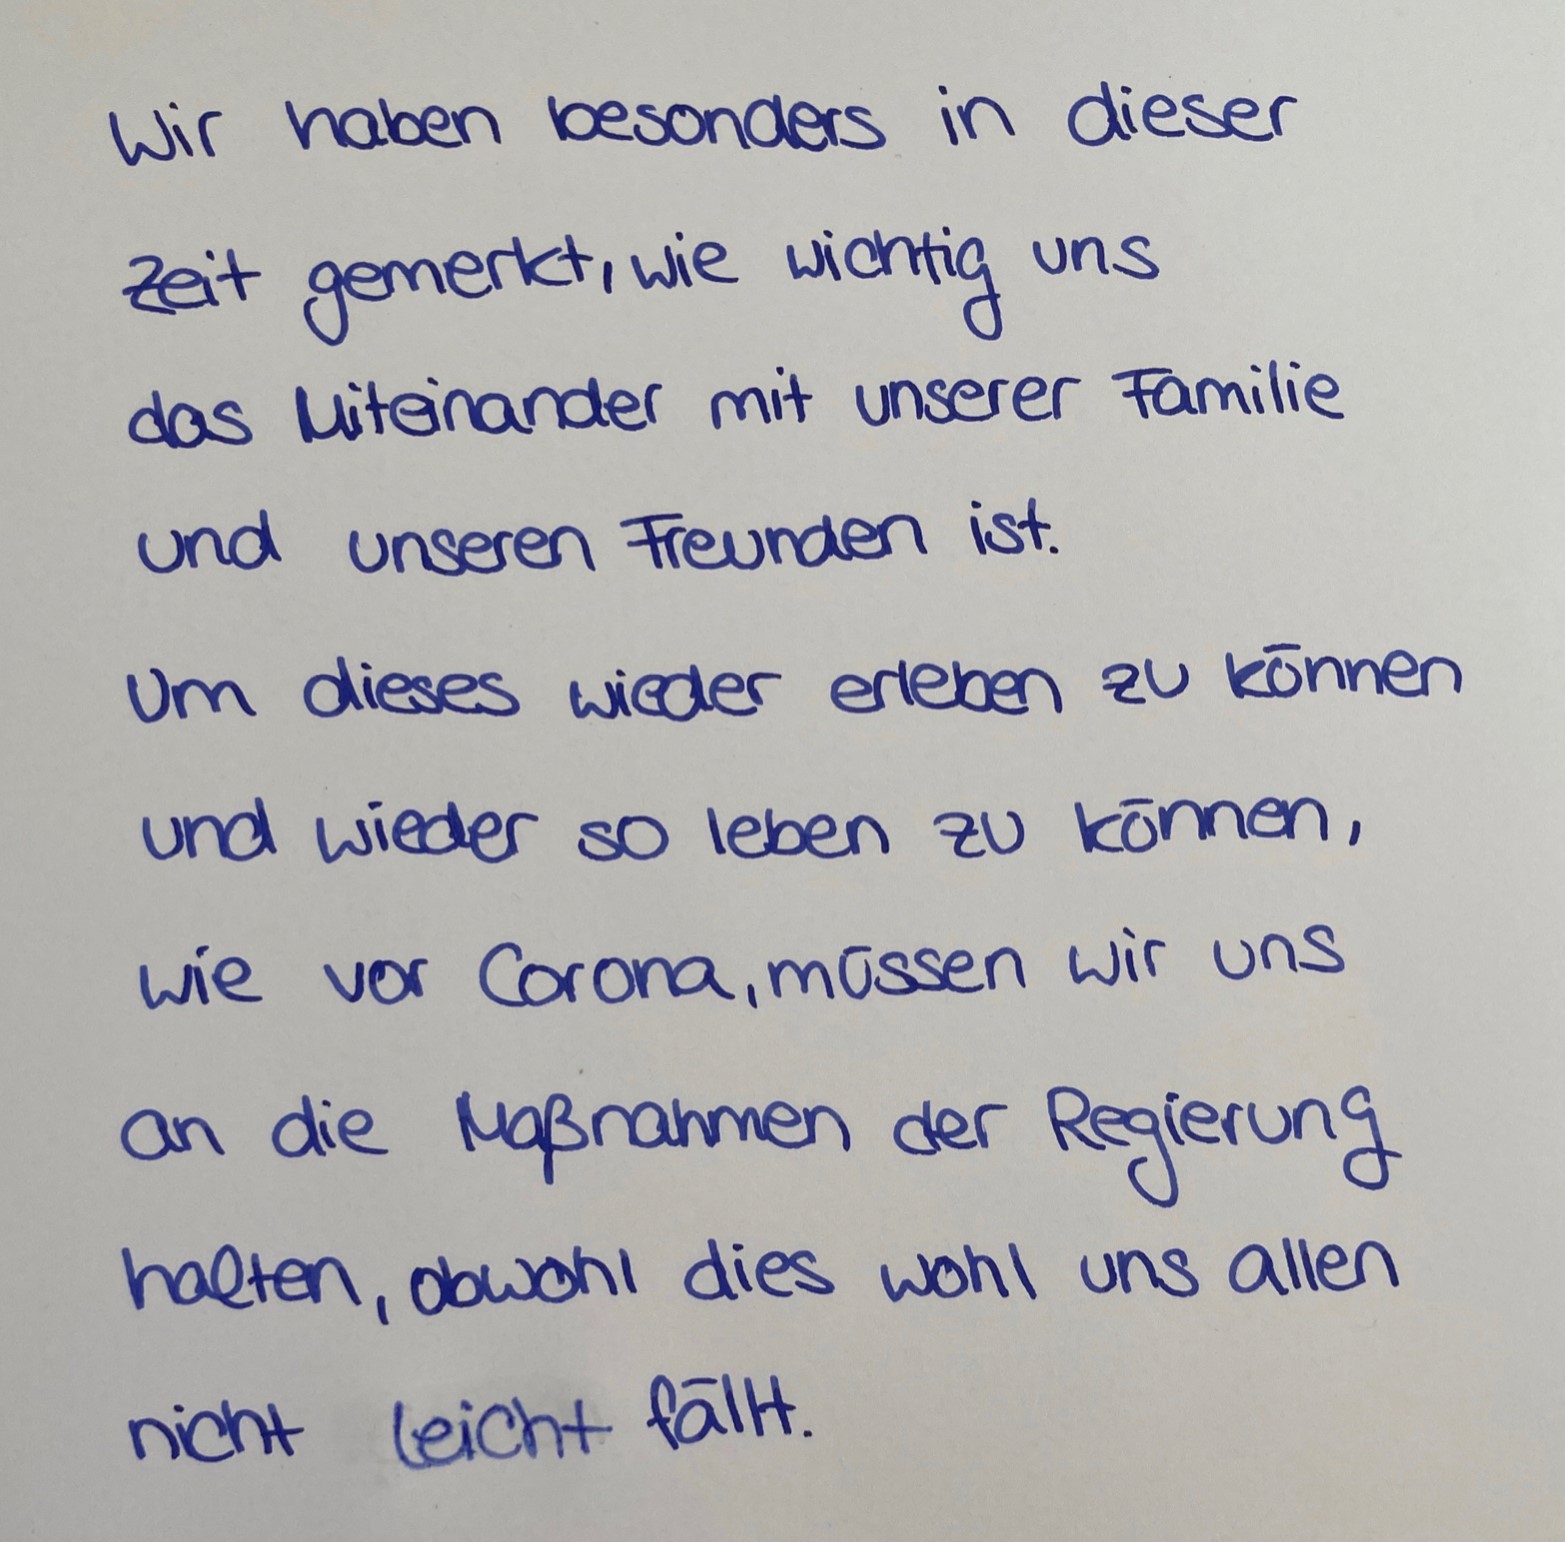 Wir haben besonders in dieser
Zeit gemerkt, wie wichtig uns
das Miteinander mit unserer Familie
und unseren Freunden ist.
Um dieses wieder erleben zu können
und wieder so leben zu können,
wie vor Corona, müssen wir uns
an die Maßnahmen der Regierung
halten, obwohl dies wohl uns allen
nicht leicht fällt.